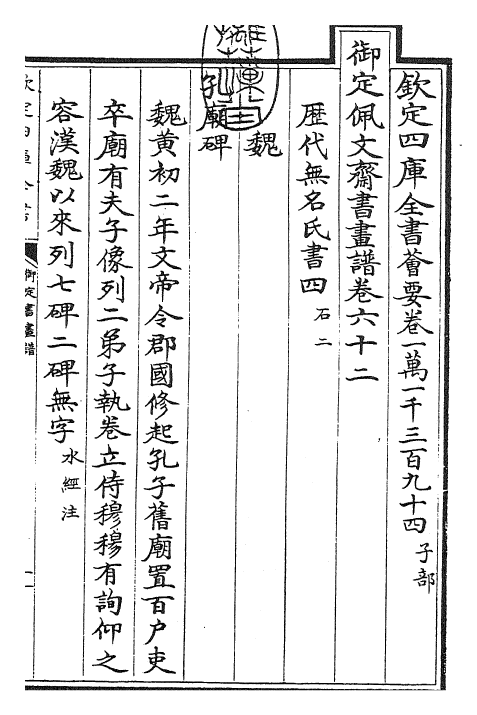 欽定四庫全書薈要卷一萬一千三百九十四 子部
御定佩文齋書畫譜卷六十二
歷代無名氏書四 石二
魏
孔廟碑
魏黃初二年文帝令郡國修起孔子舊廟置百户吏
卒廟有夫子像列二弟子執卷立侍穆穆有詢仰之
容漢魏以來列七碑二碑無字 水經注
御定書畫譜